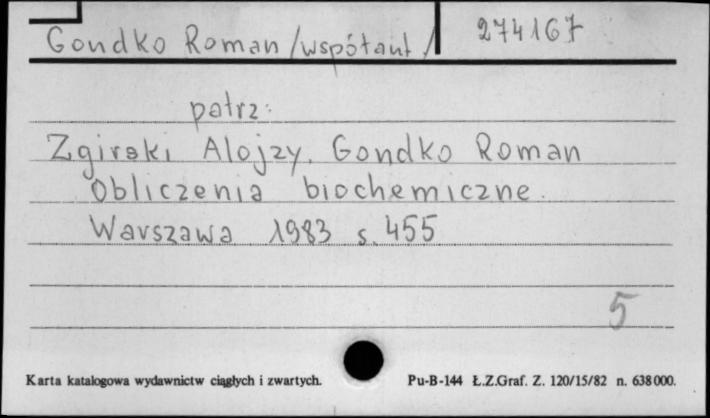 Gondko Roman /współaut/ 274167
patrz:
Zgirski Alojzy, Gondko Roman
Obliczenia biochemiczne.
Warszawa 1983 s. 455
5
Karta katalogowa wydawnictw ciągłych i zwartych. Pu-B-144 Ł.Z.Graf. Z. 120/15/82 n. 638000.